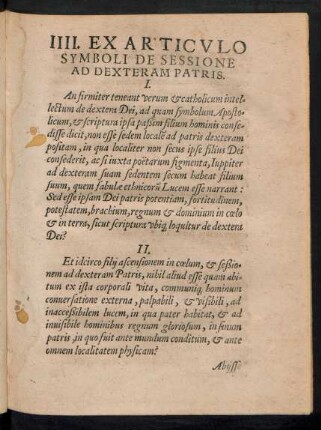 IIII. EX ARTICVLO
SYMBOLI DE SESSIONE
AD DEXTERAM PATRIS.
I.
An firmiter teneant verum & catholicum intel-
lectum de dextera Dei, ad quam symbolum Aposto-
licum, & scriptura ipsa passim filium hominis conse-
disse dicit, non esse sedem localē ad patris dexteram
positam, in qua localiter non secus ipse filius Dei
consederit, ac si iuxta poëtarum figmenta, Iuppiter
ad dexteram suam sedentem secum habeat filium
suum, quem fabulæ ethnicorū Lucem esse narrant:
Sed esse ipsam Dei patris potentiam, fortitudinem,
potestatem, brachium, regnum & dominium in cœlo
& in terra, sicut scriptura vbiq; loquitur de dextera
Dei?
II.
Et idcirco filij ascensionem in cœlum, & sessio-
nem ad dexteram Patris, nihil aliud esse quam abi-
tum ex ista corporali vita, communiq; hominum
conuersatione externa, palpabili, & visibili, ad
inaccessibilem lucem, in qua pater habitat, & ad
inuisibile hominibus regnum gloriosum, in sinum
patris, in quo fuit ante mundum conditum, & ante
omnem localitatem physicam?
Abysse